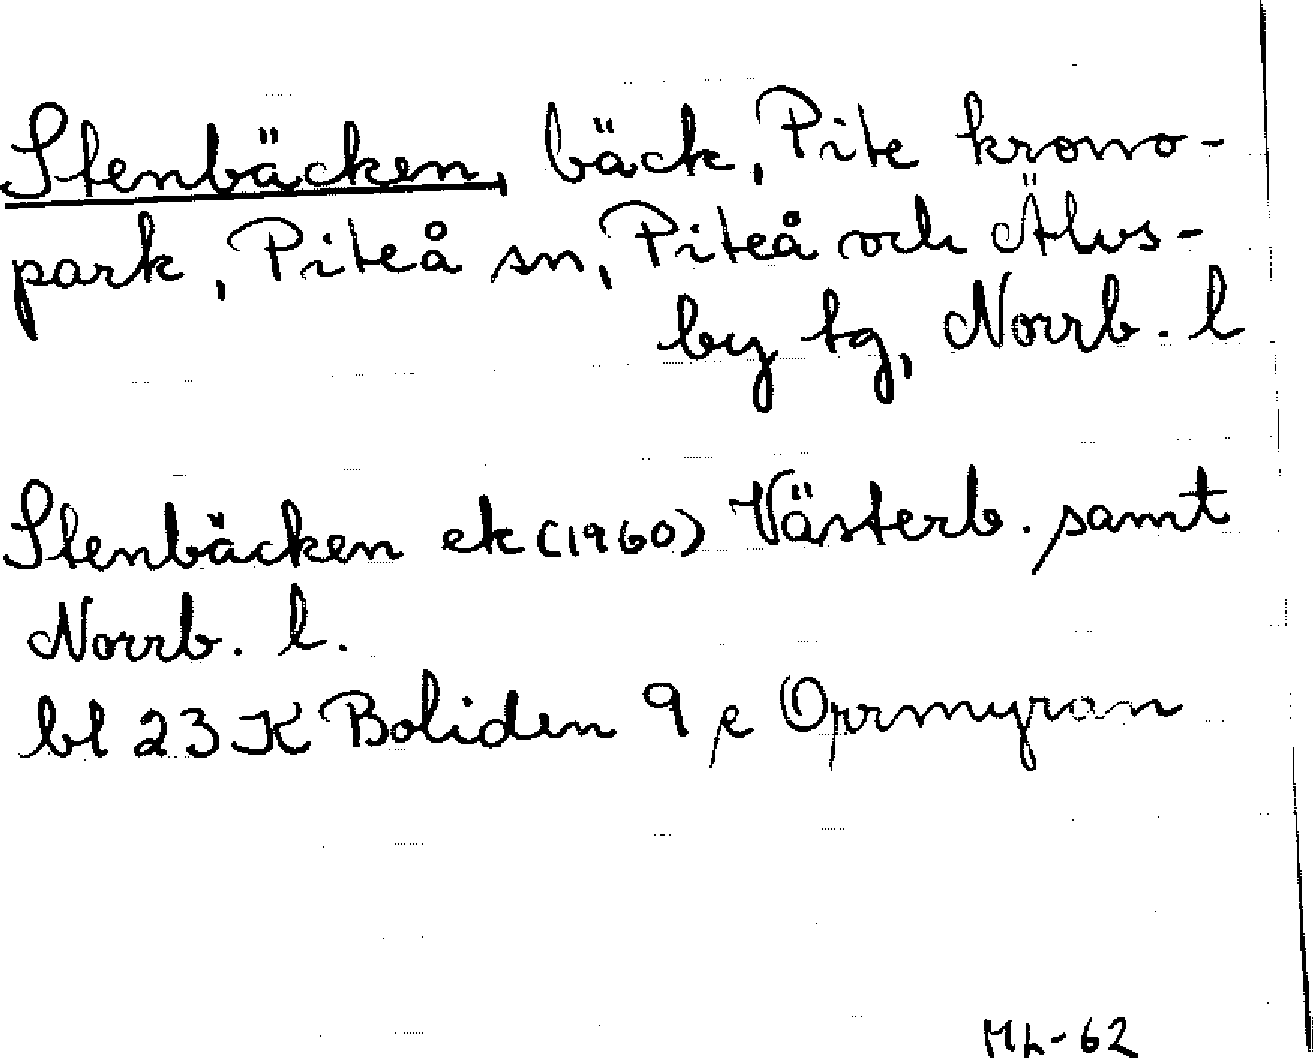 Stenbäcken, bäck, Pite krono-
park, Piteå sn, Piteå och Älvs-
by tg, Norrb. l
Stenbäcken ek (1960) Västerb. samt
Norrb. l.
bl 23 K Boliden 9 e Ormmyran
ML-62